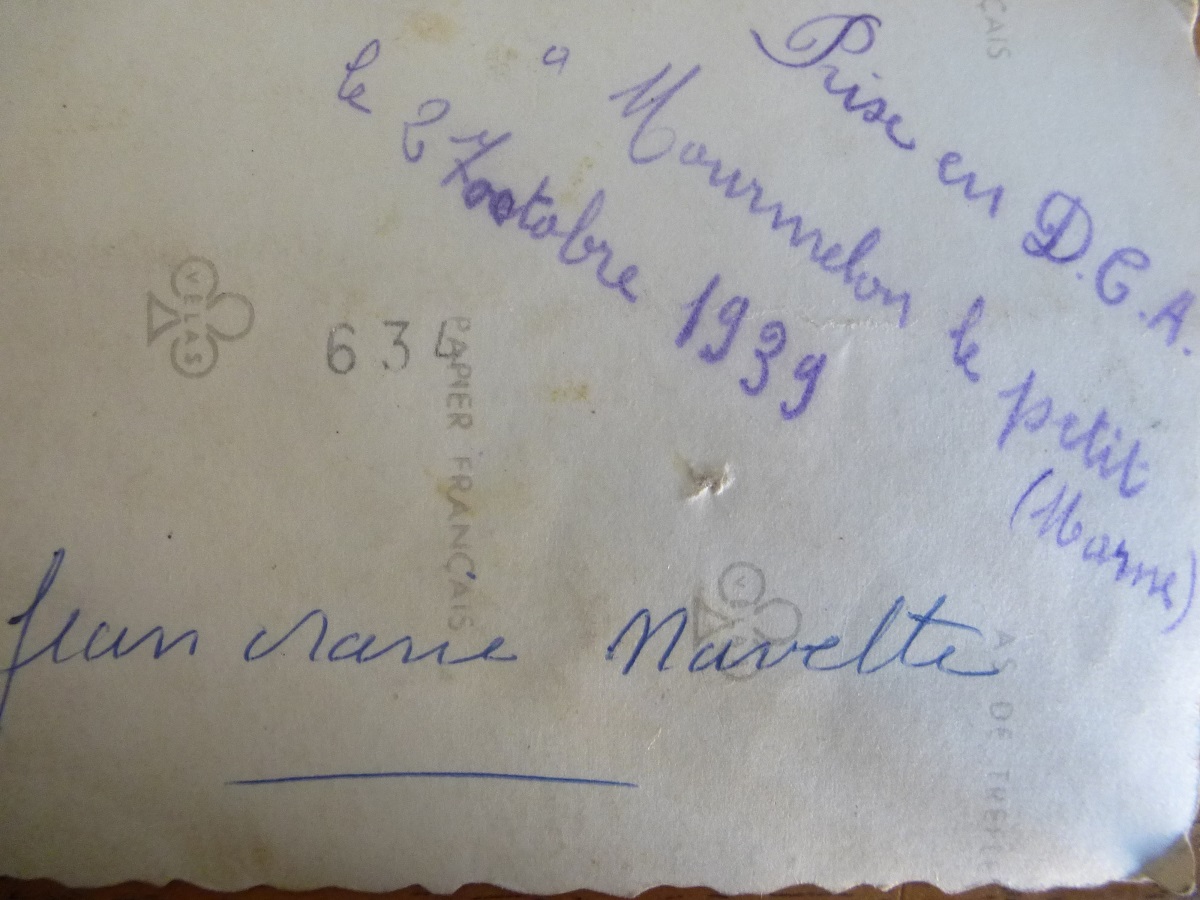 Prise en D.C.A.
a Mourmelon le petit
(Marne)
le 27 octobre 1939
ÇAIS
VELAS
634
PAPIER FRANÇAIS
VELAS
Jean Marie Navette
AS DE TREFLE